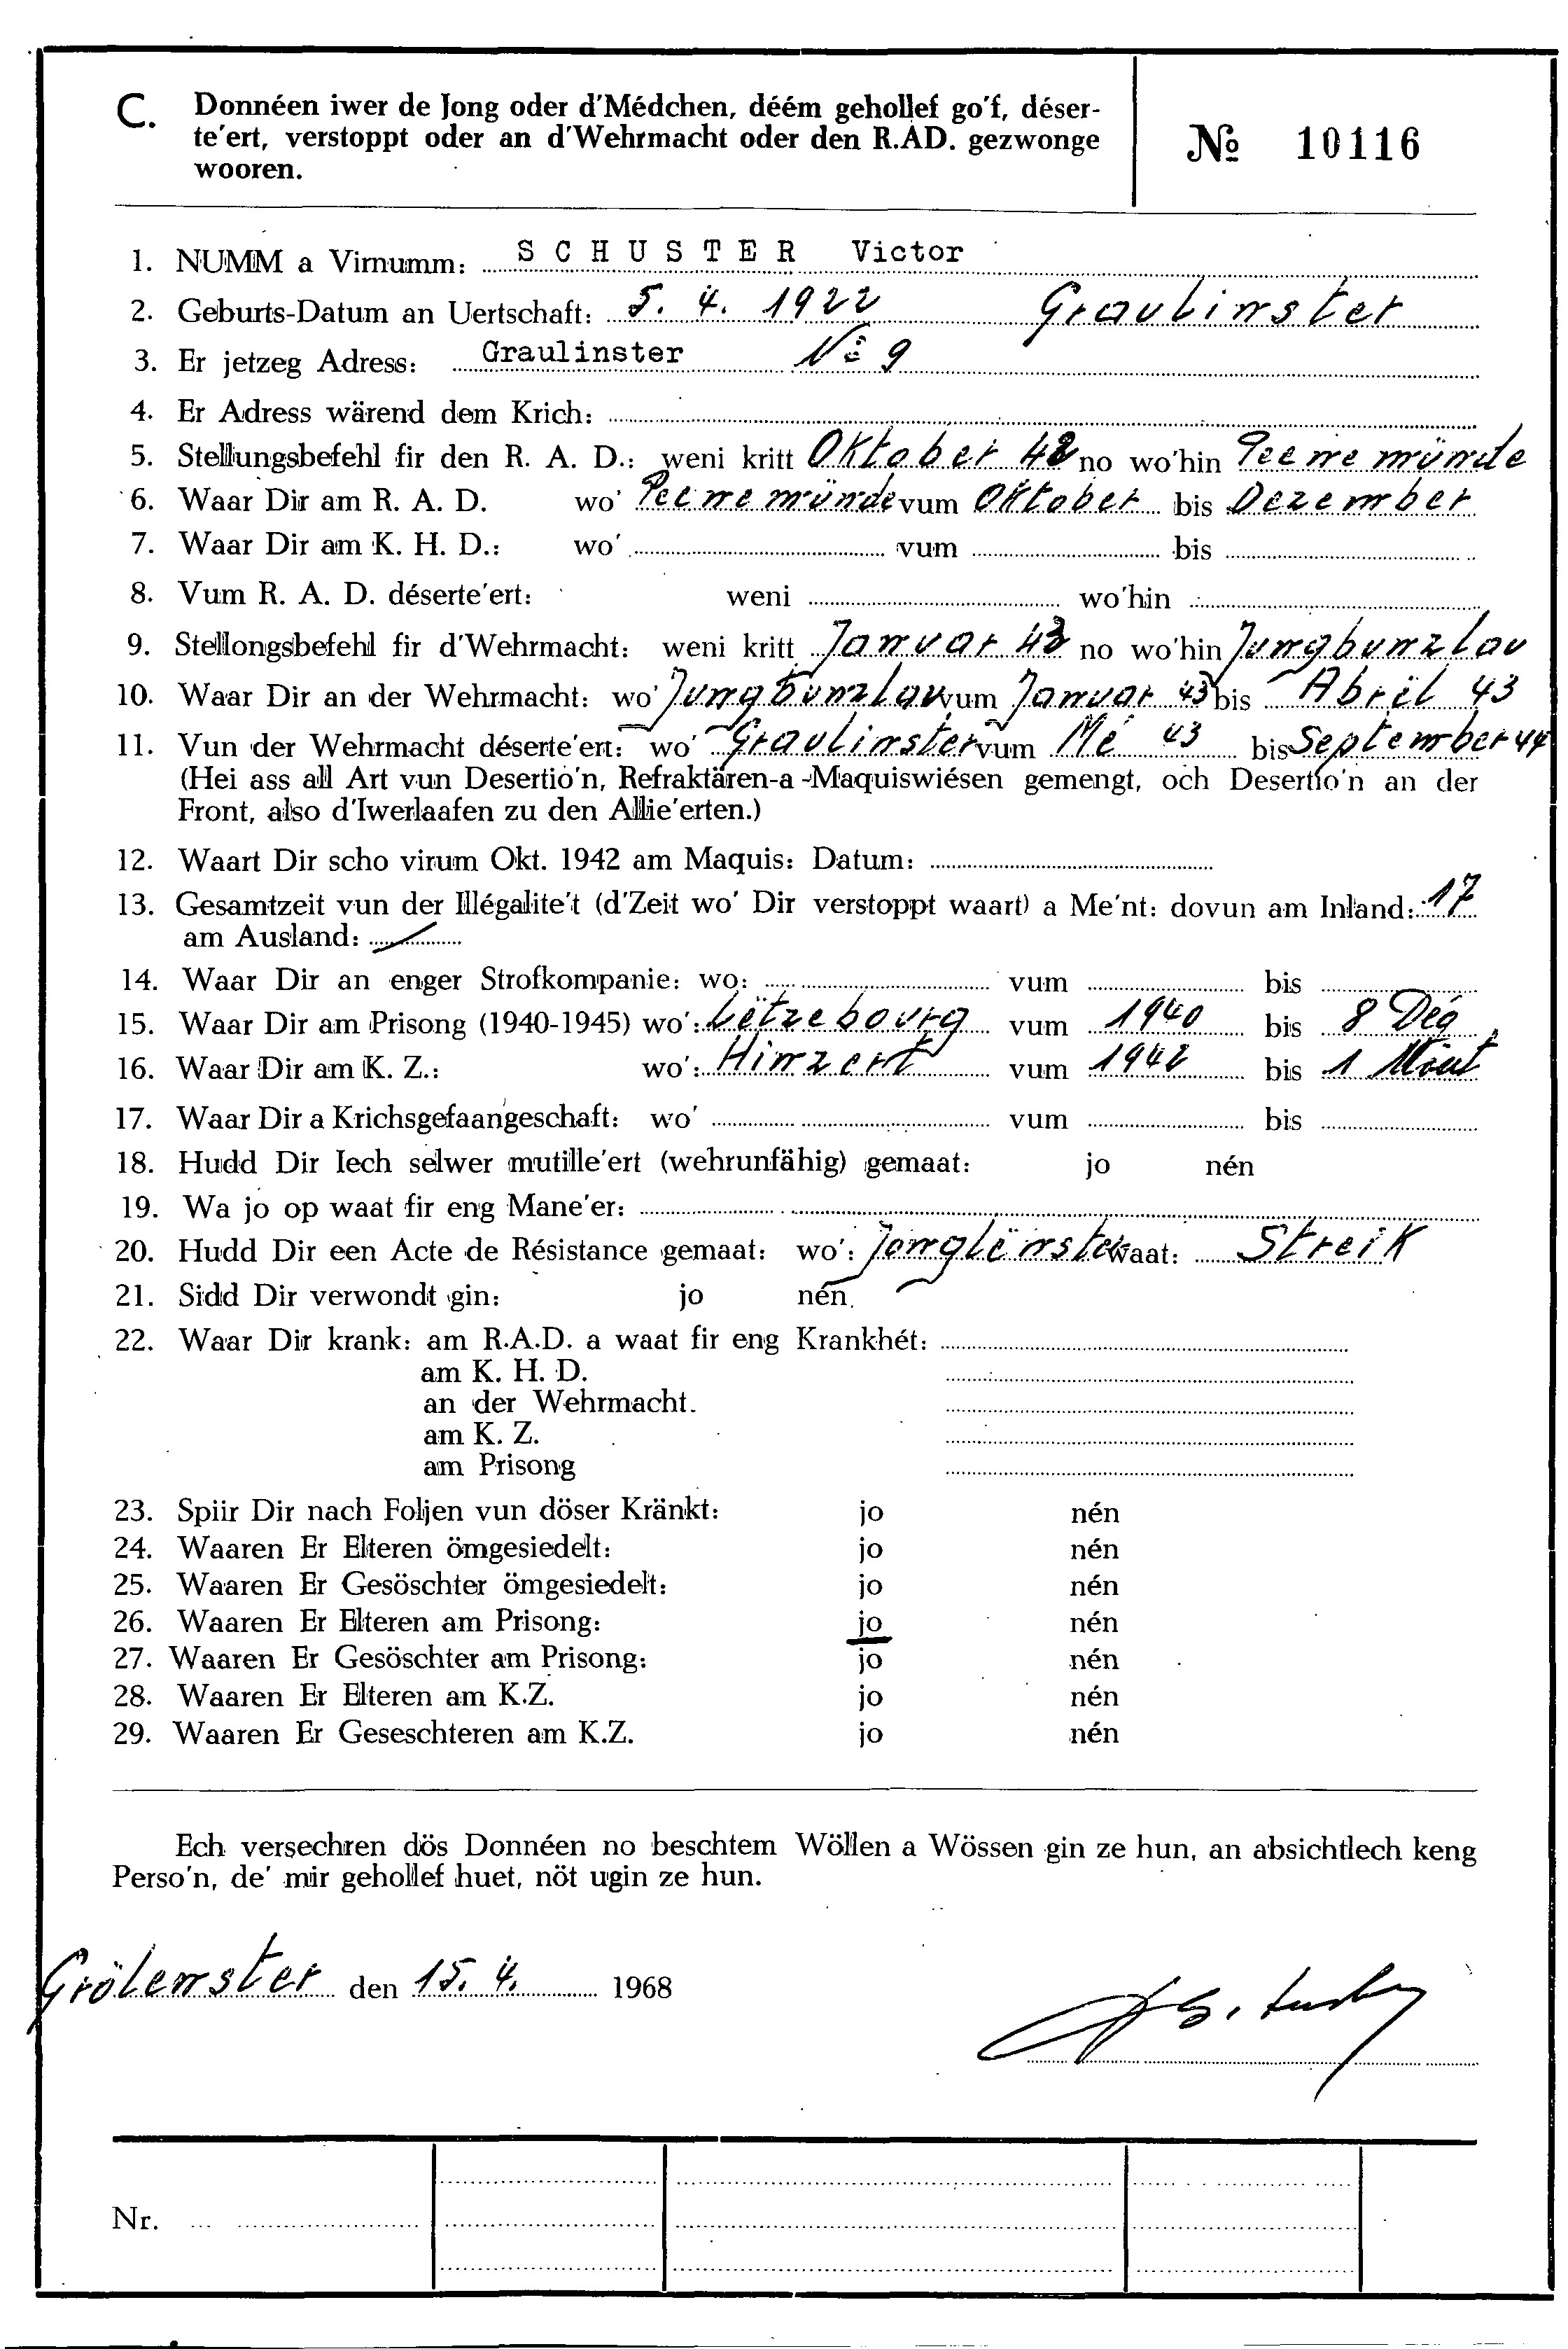 C. Donnéen iwer de Jong oder d'Médchen, déém gehollef go'f, déser-
te'ert, verstoppt oder an d'Wehrmacht oder den R.AD. gezwonge
wooren.
№ 10116
1. NUMM a Virnumm: SCHUSTER Victor
2. Geburts-Datum an Uertschaft: 5. 4. 1922 Graulinster
3. Er jetzeg Adress: Graulinster N° 9
4. Er Adress wärend dem Krich:
5. Stellungsbefehl fir den R. A. D.: weni kritt Oktober 42 no wo'hin Peenemünde
6. Waar Dir am R. A. D. wo' Peenemünde vum Oktober bis Dezember
7. Waar Dir am K. H. D.: wo' vum bis
8. Vum R. A. D. déserte'ert: weni wo'hin
9. Stellongsbefehl fir d'Wehrmacht: weni kritt Januar 43 no wo'hin Jungbunzlau
10. Waar Dir an der Wehrmacht: wo' Jungbunzlau vum Januar 43 bis Abril 43
11. Vun der Wehrmacht déserte'ert: wo' Graulinster vum Mé 43 bis September 44
(Hei ass all Art vun Desertio'n, Refraktären-a-Maquiswiésen gemengt, och Desertio'n an der
Front, also d'Iwerlaafen zu den Allie'erten.)
12. Waart Dir scho virum Okt. 1942 am Maquis: Datum:
13. Gesamtzeit vun der Illégalite't (d'Zeit wo' Dir verstoppt waart) a Me'nt: dovun am Inland: 17
am Ausland: /
14. Waar Dir an enger Strofkompanie: wo: vum bis
15. Waar Dir am Prisong (1940-1945) wo': Lëtzebourg vum 1940 bis 8 Deg
16. Waar Dir am K. Z.: wo': Hinzert vum 1942 bis 1 Mount
17. Waar Dir a Krichsgefaangeschaft: wo' vum bis
18. Hudd Dir Iech selwer mutille'ert (wehrunfähig) gemaat: jo nén
19. Wa jo op waat fir eng Mane'er:
20. Hudd Dir een Acte de Résistance gemaat: wo': Jonglënster waat: Streik
21. Sidd Dir verwondt gin: jo nén
22. Waar Dir krank: am R.A.D. a waat fir eng Krankhét:
am K. H. D.
an der Wehrmacht.
am K. Z.
am Prisong
23. Spiir Dir nach Foljen vun döser Kränkt: jo nén
24. Waaren Er Elteren ömgesiedelt: jo nén
25. Waaren Er Gesöschter ömgesiedelt: jo nén
26. Waaren Er Elteren am Prisong: jo nén
27. Waaren Er Gesöschter am Prisong: jo nén
28. Waaren Er Elteren am K.Z. jo nén
29. Waaren Er Geseschteren am K.Z. jo nén
Ech versechren dös Donnéen no beschtem Wöllen a Wössen gin ze hun, an absichtlech keng
Perso'n, de' mir gehollef huet, nöt ugin ze hun.
Grölenster den 15. 4. 1968
Nr.